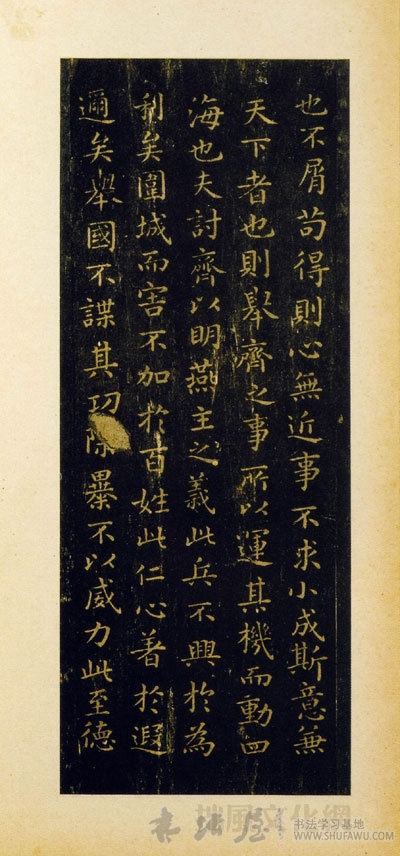 也不屑苟得則心無近事不求小成斯意無
天下者也則舉齊之事所以運其機而動四
海也夫討齊以明燕主之義此兵不興於為
利矣圍城而害不加於百姓此仁心著於遐
邇矣舉國不謀其功除暴不以威力此至德
书法屋
书法学习基地
WWW.SHUFAWU.COM